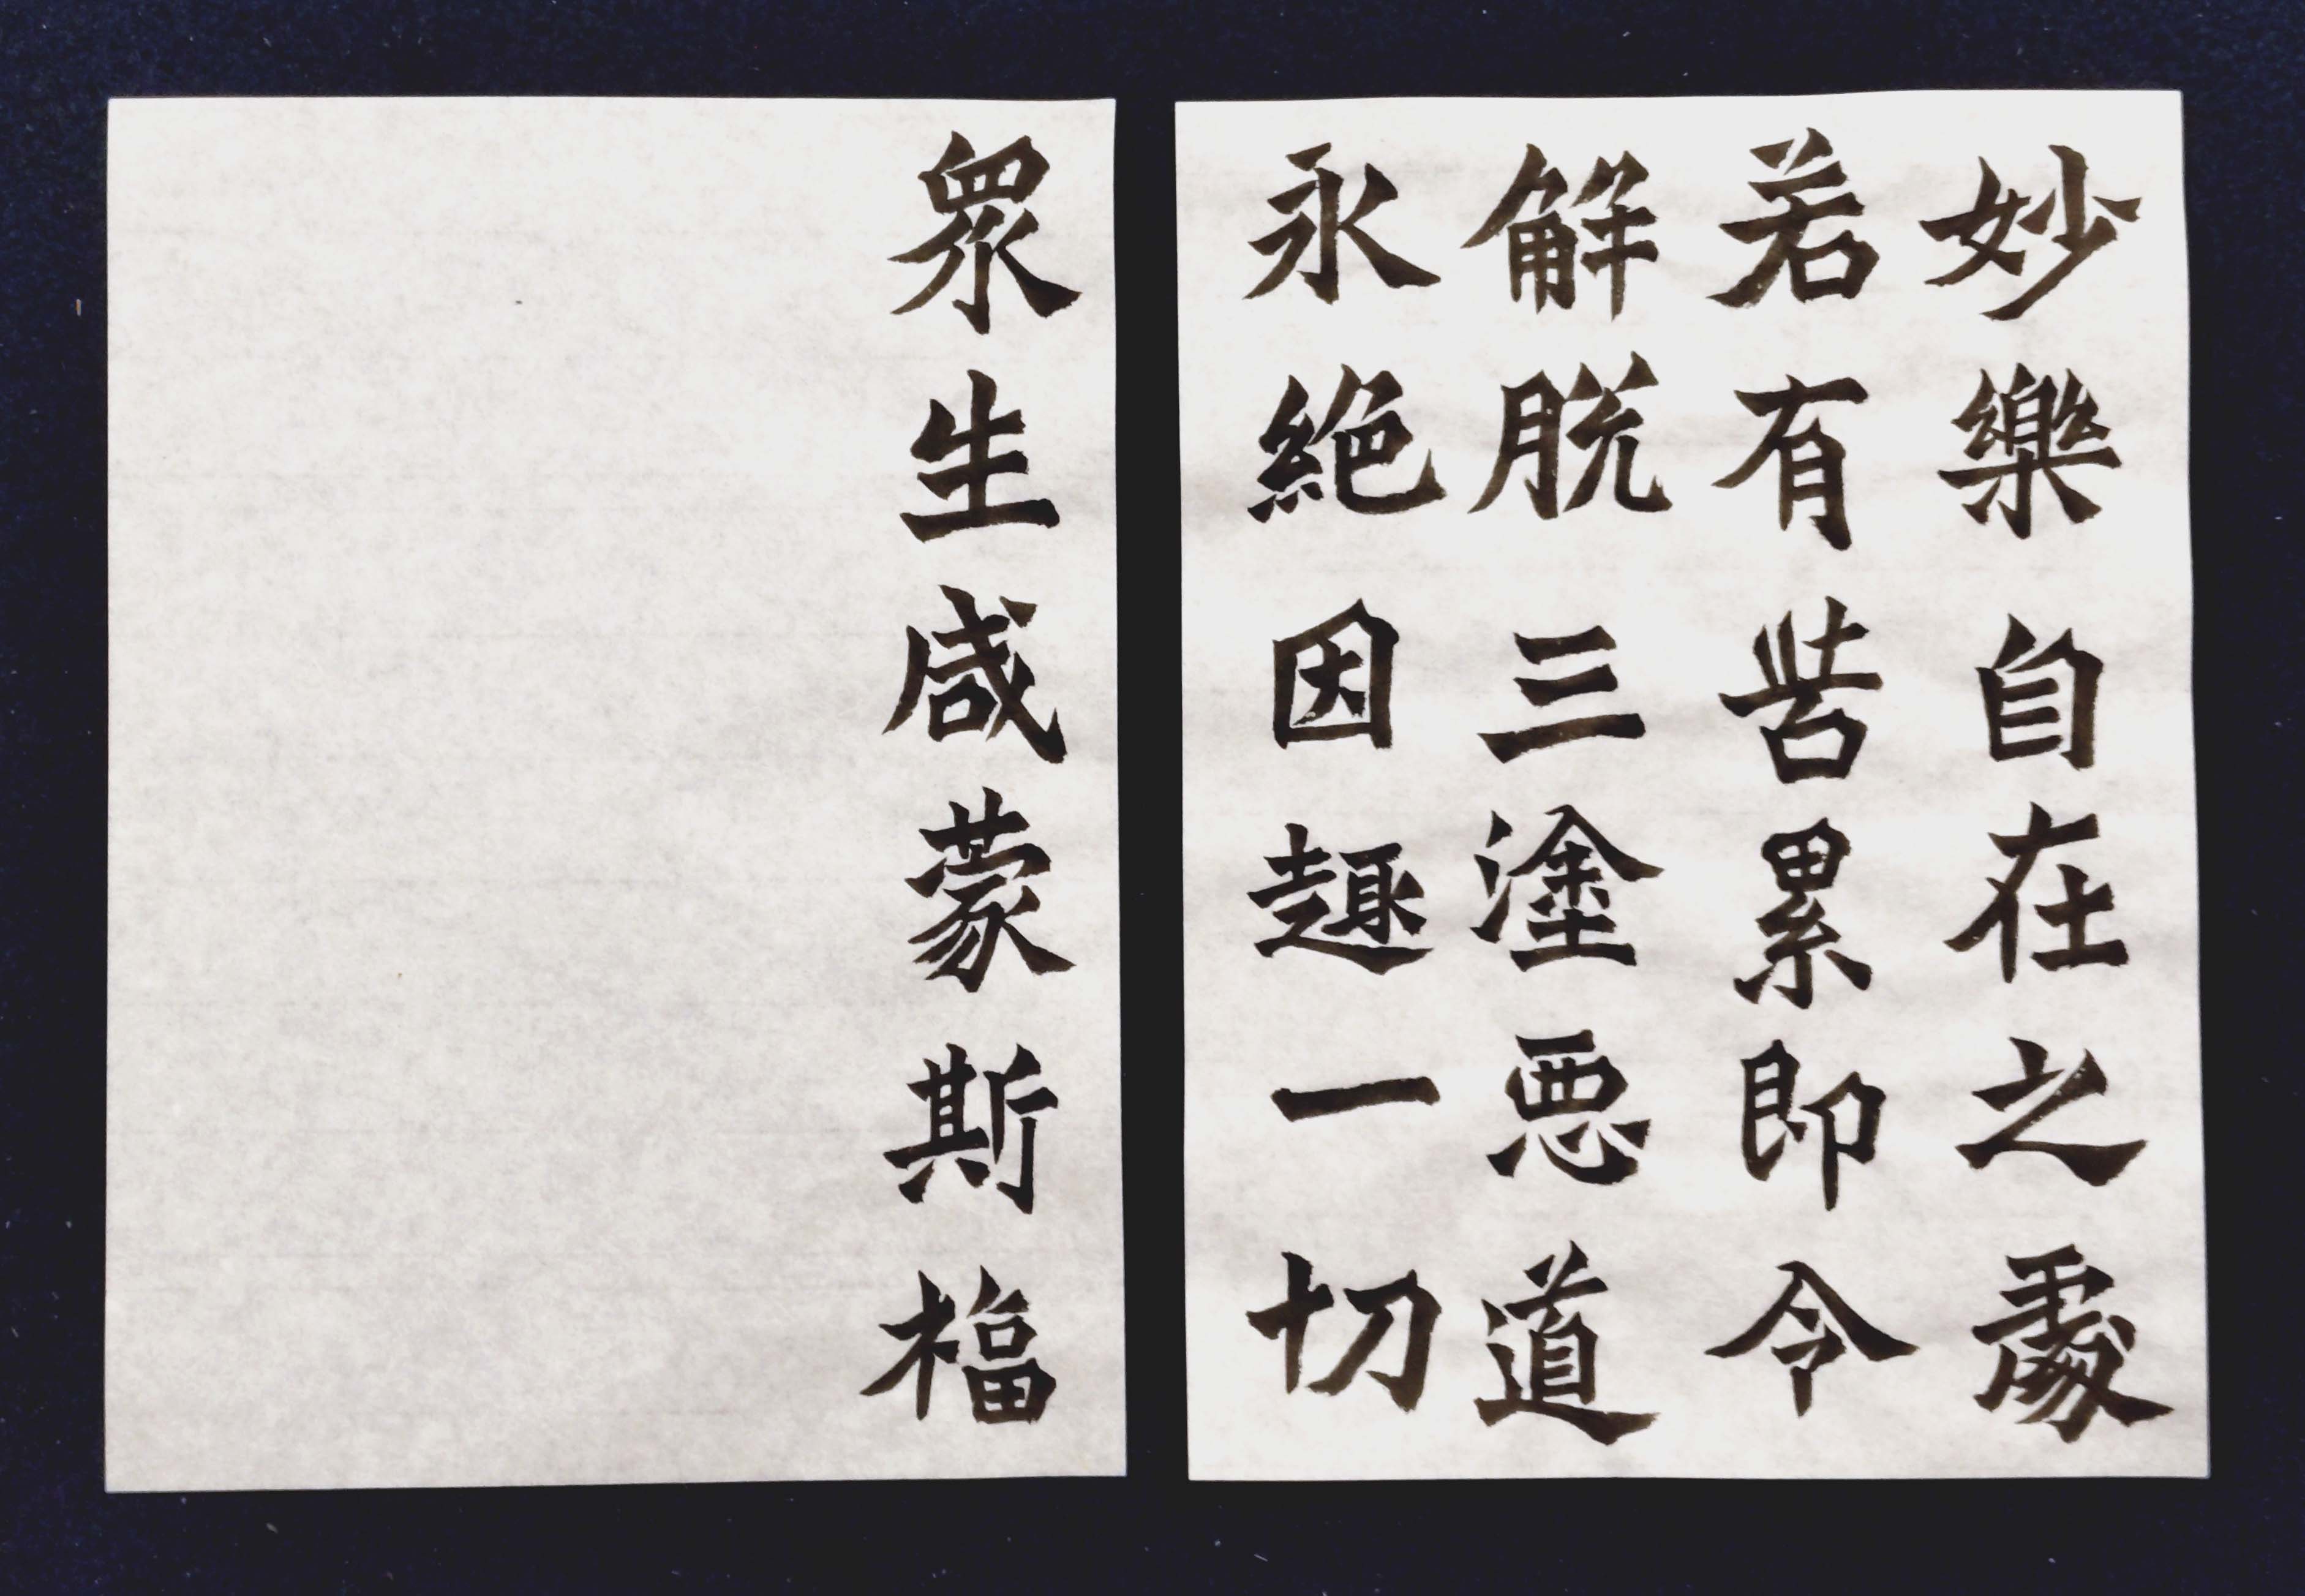 妙樂自在之處
若有苦累即令
解脱三塗惡道
永絕因趣一切
眾生咸蒙斯福